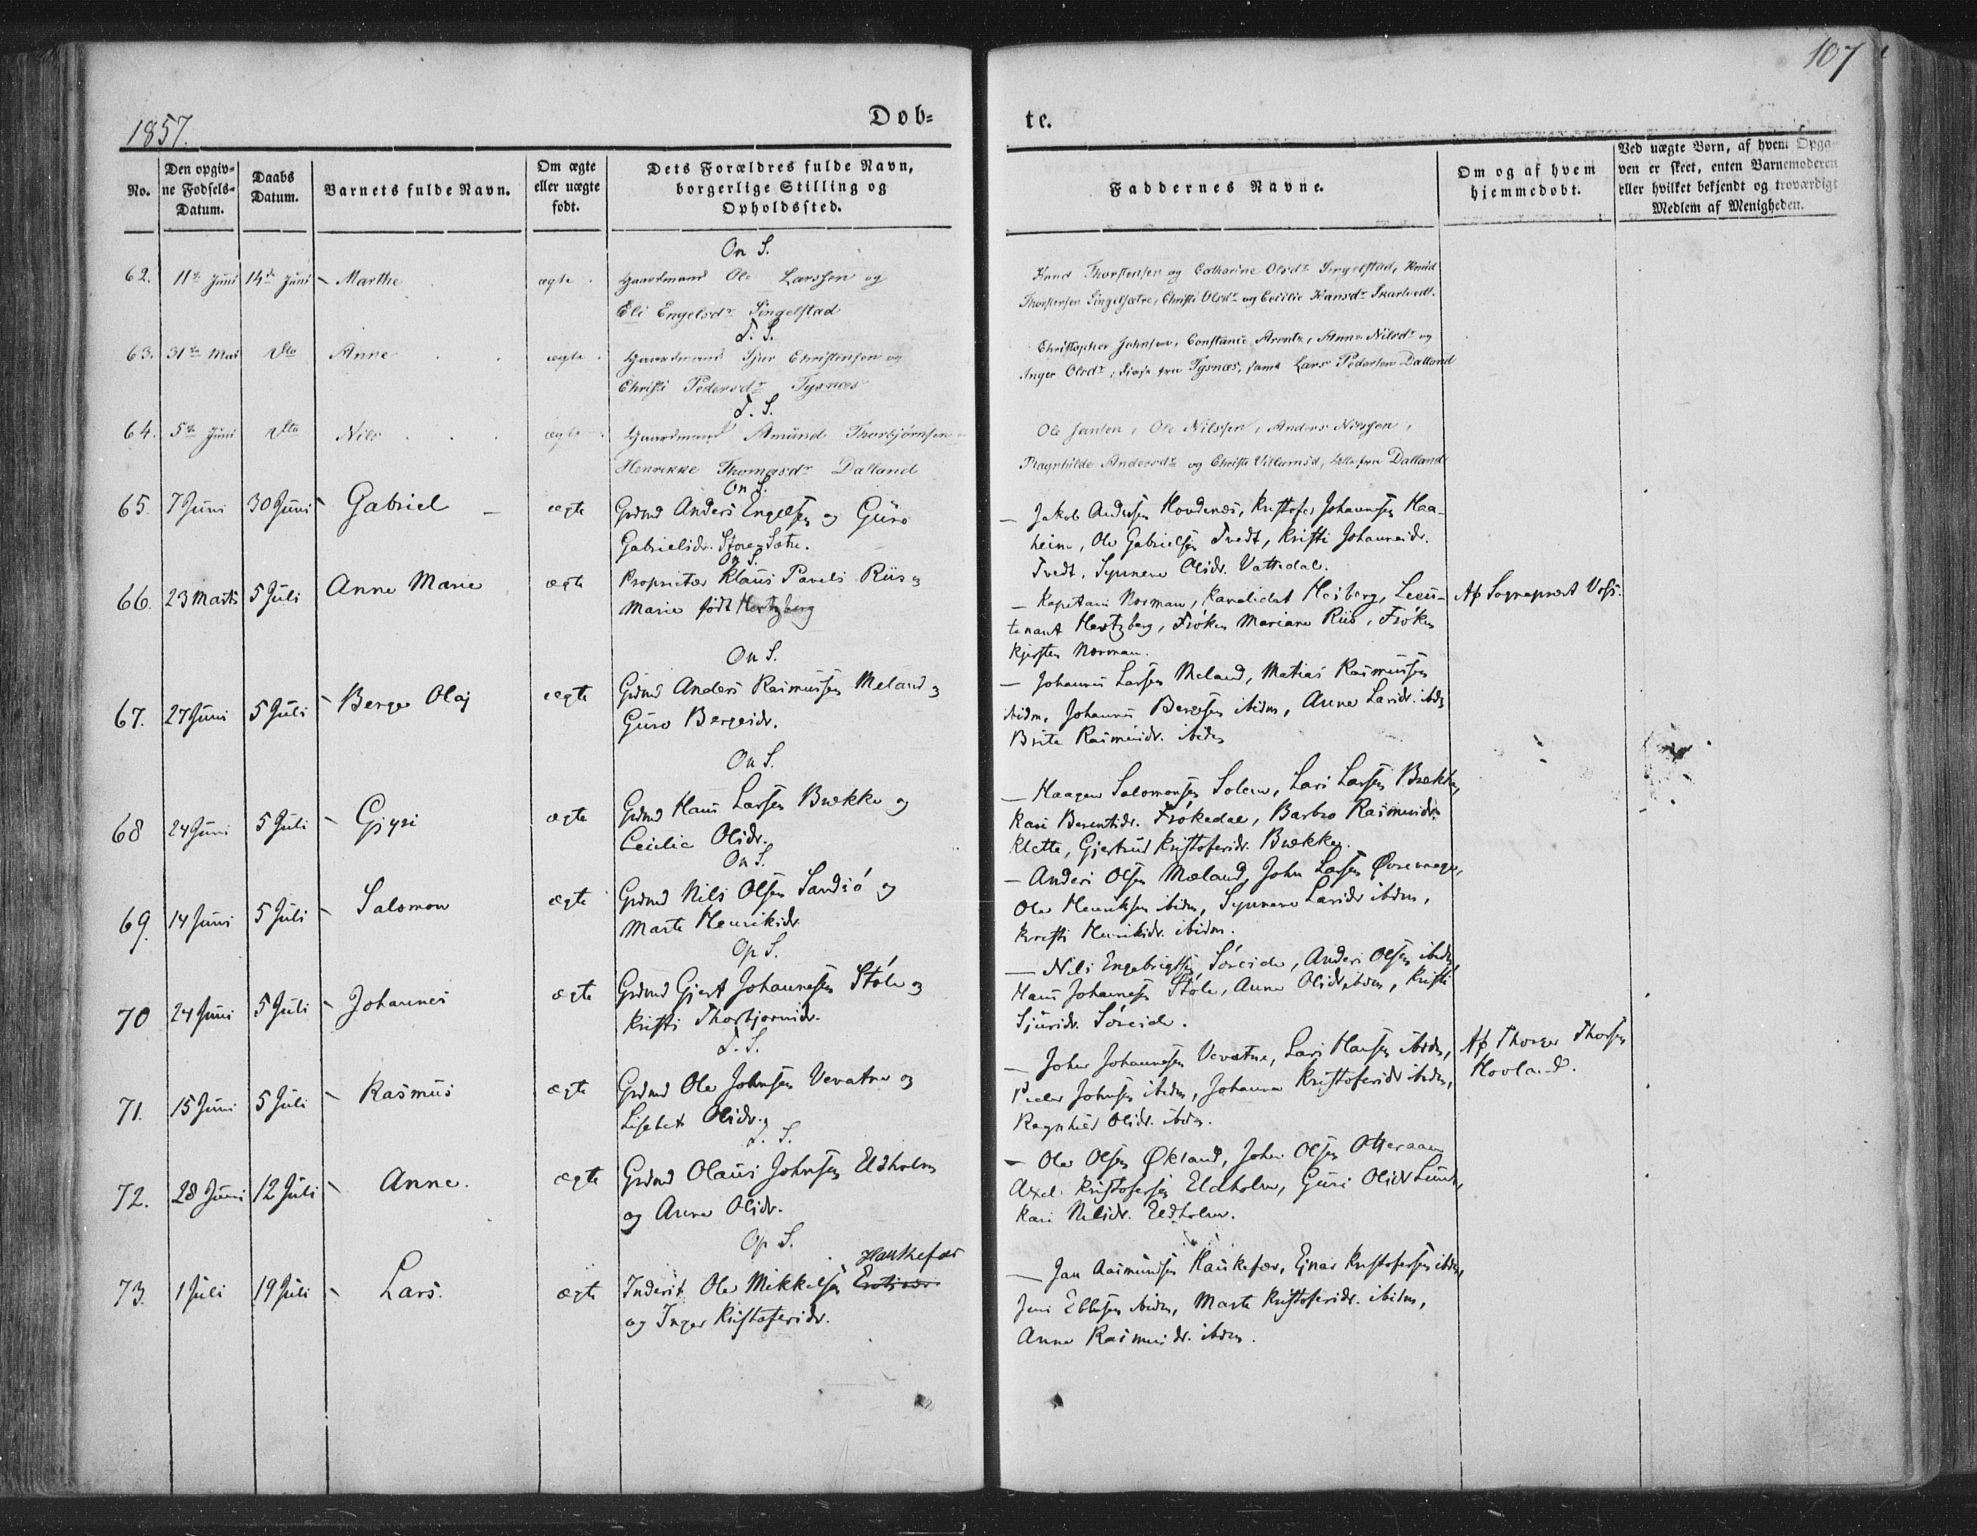 107
1857.
Døb=
te.
No.
Den opgiv-
ne Fødsels-
Datum.
Daabs
Datum.
Barnets fulde Navn.
Om ægte
eller uægte
født.
Dets Forældres fulde Navn,
borgerlige Stilling og
Opholdssted.
Faddernes Navne.
Om og af hvem
hjemmedøbt.
Ved uægte Børn, af hvem Opga-
ven er skeet, enten Barnemoderen
eller hvilket bekjendt og troværdigt
Medlem af Menigheden.
On S.
62. 11te Juni 14de Juni Marthe ægte Gaardmand Ole Larssen og
Eli Engelsdr Singelstad
Knud Thorstensen og Cathrine Olsdr Singelstad, Knud
Thorstensen Singelsætre, Christi Olsdr og Cecilie Hansdr Skartvedt.
T. S.
63. 31te Mai dto Anne ægte Gaardmand Sjur Christensen og
Christi Pedersdr Tysnæs
Christopher Johnsen, Constanse Arentz, Anna Nilsdr og
Inger Olsdr, fra Tysnæs, samt Lars Pedersen Dalland
T. S.
64. 5te Juni dto Nils ægte Gaardmand Amund Thorbjørnsen
Henrikke Thomasdr Dalland
Ole Jansen, Ole Nilssen, Anders Nilssen,
Ragnhilde Andersdr og Christi Villumsd, alle fra Dalland
On S.
65. 7 Juni 30 Juni Gabriel ægte Grdmd Anders Engelsen og Guro
Gabrielsdr. Store-Sætre.
Jakob Andersen Hovdenæs, Kristofer Johannesen Haa-
heim, Ole Gabrielsen Tvedt, Kristi Johannesdr.
Tvedt, Synneve Olsdr. Vattedal.
On S.
66. 23 Marts 5 Juli Anne Marie ægte Proprietær Klaus Pavels Riis og
Marie født Hertzberg
Kapitain Norman, Kandidat Heiberg, Lieu-
tenant Hertzberg, Frøken Mariane Riis, Frøken
Kjersten Norman.
Af Sognepræst Voss.
On S.
67. 27 Juni 5 Juli Berge Olaj ægte Grdmd Anders Rasmussen Meland og
Guro Bergesdr.
Johannes Larsen Meland, Matias Rasmussen
ibidm, Johannes Bergesen ibidm, Anna Larsdr. ibdm
Brite Rasmusdr. ibdm
On S.
68 24 Juni 5 Juli Gjyri ægte Grdmd Hans Larsen Brække og
Cecilie Olsdr.
Haagen Salomonsen Solem, Lars Larsen Brække,
Kari Berentsdr. Frøkedal, Barbro Rasmusdr.
Klette, Gjertrud Kristofersdr. Brække.
On S.
69. 14 Juni 5 Juli Salomon ægte Grdmd Nils Olsen Sandsø og
Marte Henriksdr
Anders Olsen Mæland, John Larsen
Ole Henriksen ibidm, Synneve Larsdr ibidm,
Kristi Henriksdr. ibidm.
Op S.
70 24 Juni 5 Juli Johannes ægte Grdmd Gjert Johannesen Støle og
Kristi Thorbjørnsdr.
Nils Engebrigtsen Søreide, Anders Olsen ibidm
Hans Johannesen Støle, Anna Olsdr ibidm, Kristi
Sjursdr. Søreide.
T. S.
71. 15 Juni 5 Juli Rasmus ægte Grdmd Ole Johnsen Vevatne og
Lisebet Olsdr.
John Johannesen Vevatne, Lars Hansen ibidm,
Peder Johnsen ibidm, Johanna Kristofersdr ibidm,
Ragnhild Olsdr. ibdm.
Af Thorger Thorsen
Hovland.
T. S.
72. 28 Juni 12 Juli Anne. ægte Grdmd Olaus Johnsen Eldholm
og Anna Olsdr.
Ole Olsen Økland, John Olsen Otteraaen
Axel Kristofersen Eldholm, Guri Olsdr Lunde,
Kari Nilsdr. Eldholm.
Op S.
Haukefær
73. 1 Juli 19 Juli Lars. ægte Inderst Ole Mikkelsen
og Inger Kristofersdr.
Jan Aasmundsen Haukefær, Ejnar Kristofersen ibidm,
Jens Ebbesen ibidm, Marte Kristofersdr. ibidm,
Anna Rasmusdr. ibdm.